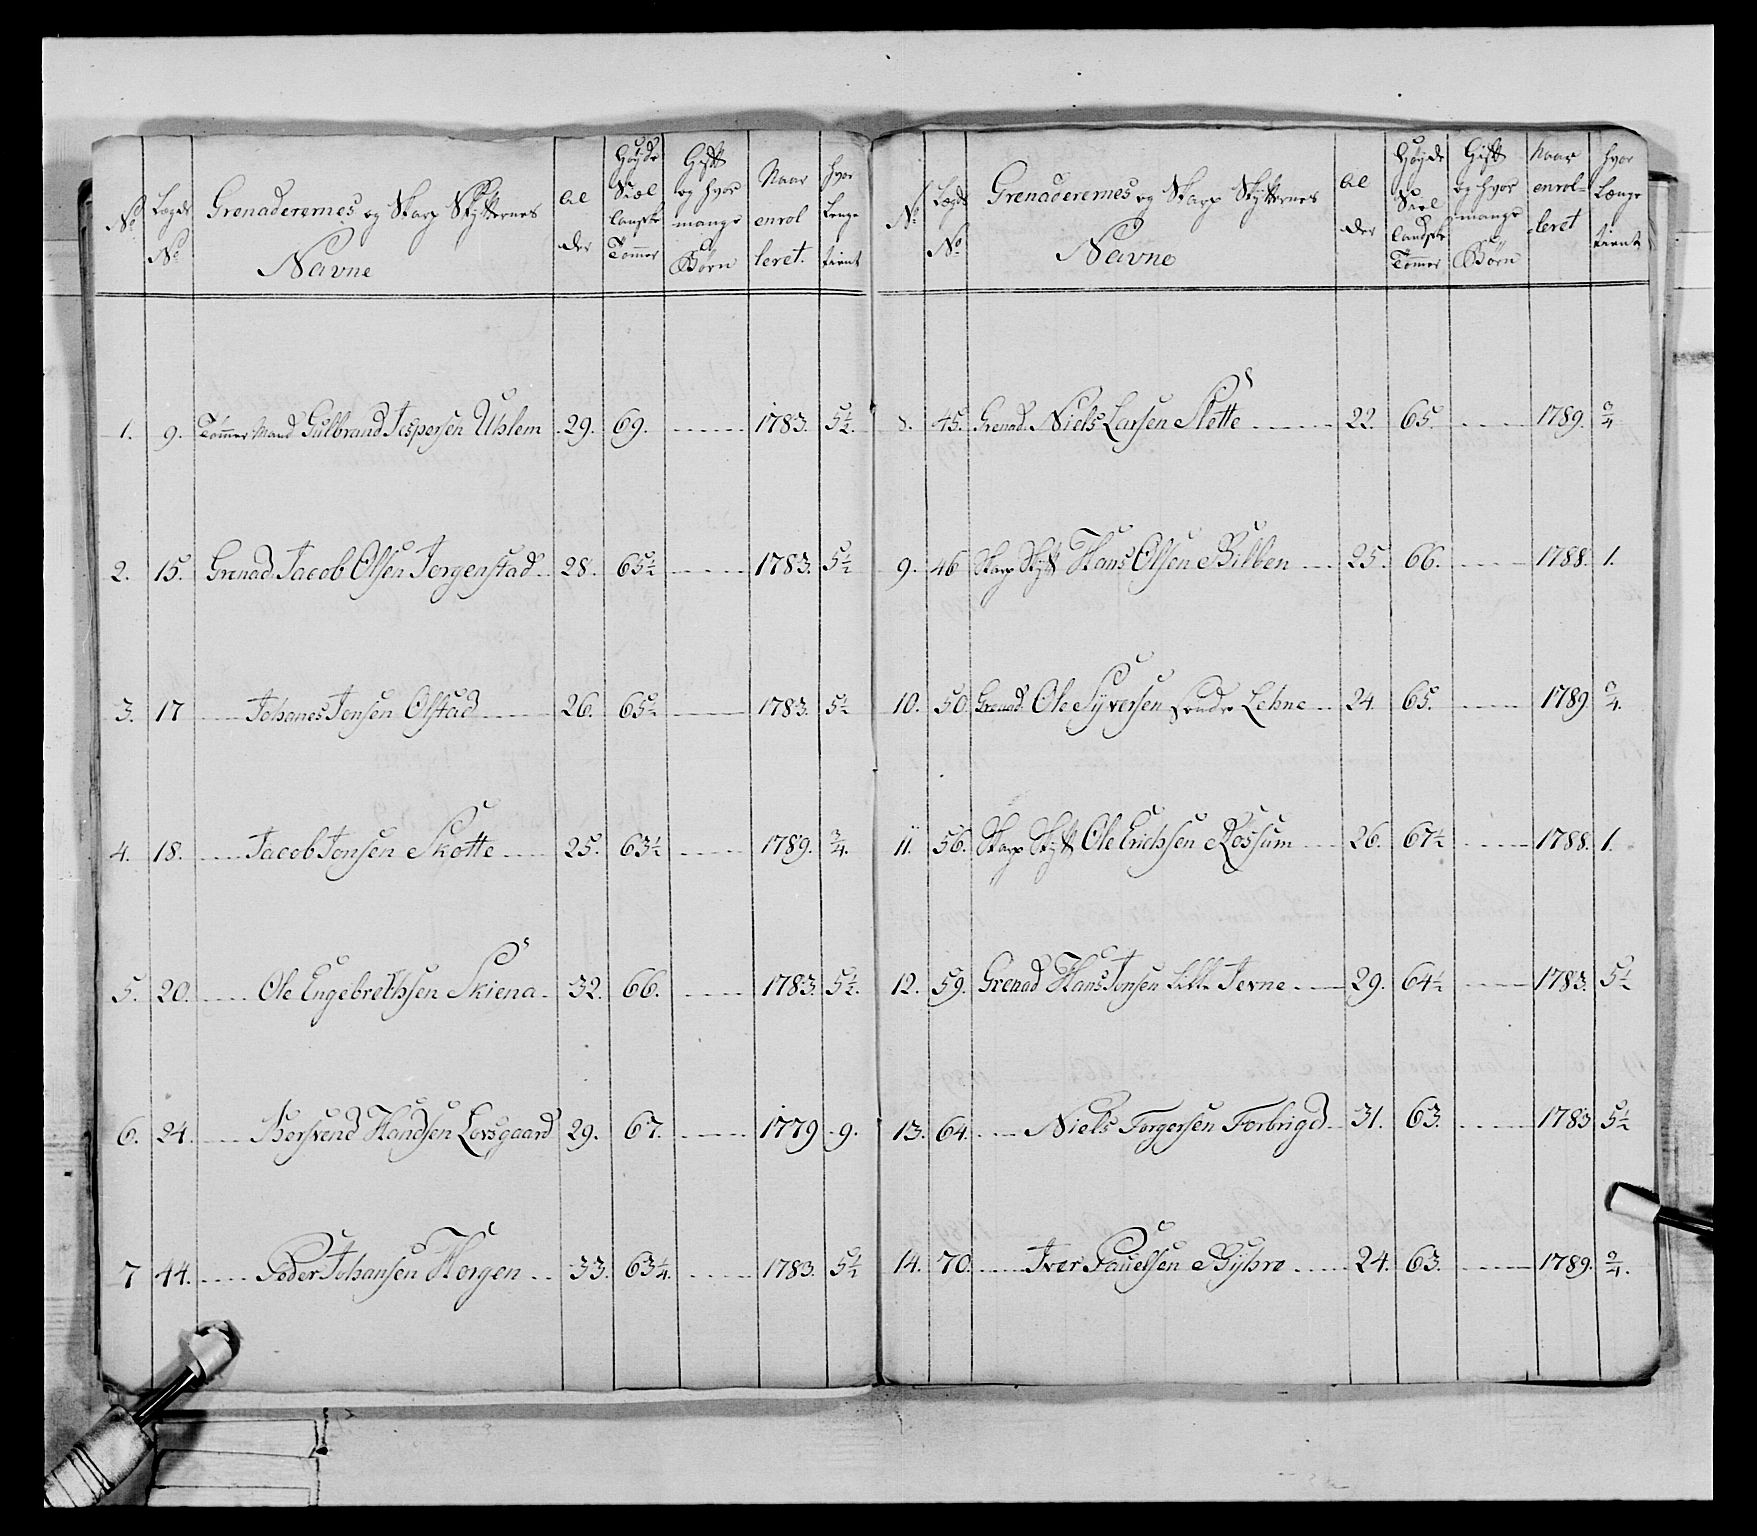 No
Lægds No
Grenaderernes og Skarp Skytternes Navne
Al der
Høyde Siæl landske Tommer
Gift og hvor mange Børn
Naar enrol leret.
hvor Lenge tient
1. 9. Tømmer Mand Gulbrand Jespersen Uhlem 29. 69. 1783. 5½.
2. 15. Grenad Jacob Olsen Jorgenstad 28. 65½ 1783. 5½
3. 17 Johanes Jonsen Olstad 26. 65½ 1783. 5½
4. 18. Jacob Jonsen Skotte 25. 63½ 1789. ¾.
5. 20. Ole Engebrethsen Skiena 32. 66. 1783. 5½.
6. 24. Bersvend Handsen Lovsgaard 29. 67. 1779 9.
7 44. Peder Johansen Horgen 33. 63¼. 1783. 5½
No
Lægds No
Grenaderernes og Skarp Skytternes Navne
Al der
Høyde Siæl landske Tommer
Gift og hvor mange Børn
Naar enrol= leret
hvor Længe tient
8. 45. Grenad. Niels Larsen Slette 22. 65. 1789. ¾
9. 46 Skarp Skytt Hans Olsen Bilben 25. 66. 1788. 1.
10. 50. Grenad. Ole Syversen søndre Lehne 24. 65. 1789. ¾.
11. 56. Skarp Skytt Ole Erichsen Rossum 26. 67½ 1788. 1.
12. 59. Grenad Hans Jonsen Lille Jevne 29. 64½ 1783. 5½
13. 64. Niels Torgersen Forbrigd 31. 63. 1783 5½
14. 70. Iver Pouelsen Byhre 24. 63. 1789. ¾.